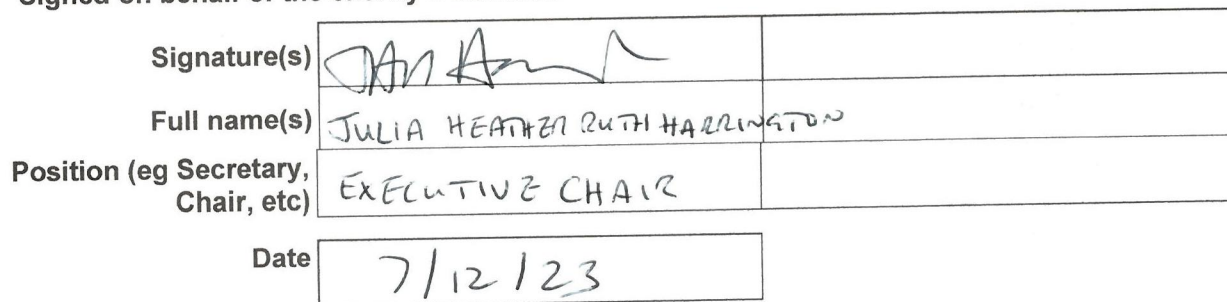 Signature(s)
Full name(s) JULIA HEATHER RUTH HARRINGTON
Position (eg Secretary,
Chair, etc) EXECUTIVE CHAIR
Date 7/12/23